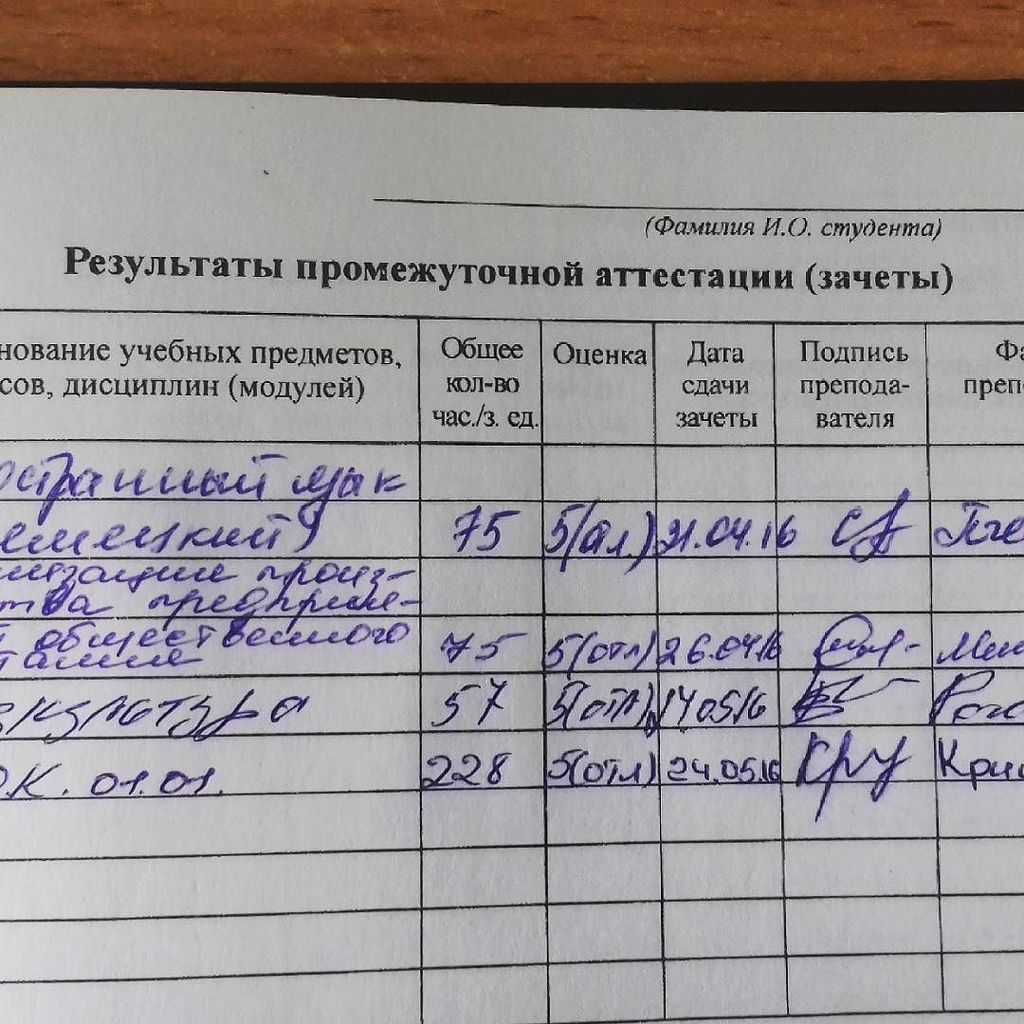 (Фамилия И.О. студента)
Результаты промежуточной аттестации (зачеты)
нование учебных предметов,
сов, дисциплин (модулей)
Общее
кол-во
час./з. ед.
Оценка
Дата
сдачи
зачеты
Подпись
препода-
вателя
Фа
преп
остранный язык
емецкий) 75 5( 21.04.16
низации произ-
тва предприя-
й общественного
тания 75 5(отл) 26.04.16
зкультура 57 5(отл) 14.05.16
ДК. 01.01. 228 5(отл) 24.05.16 Кру Кри